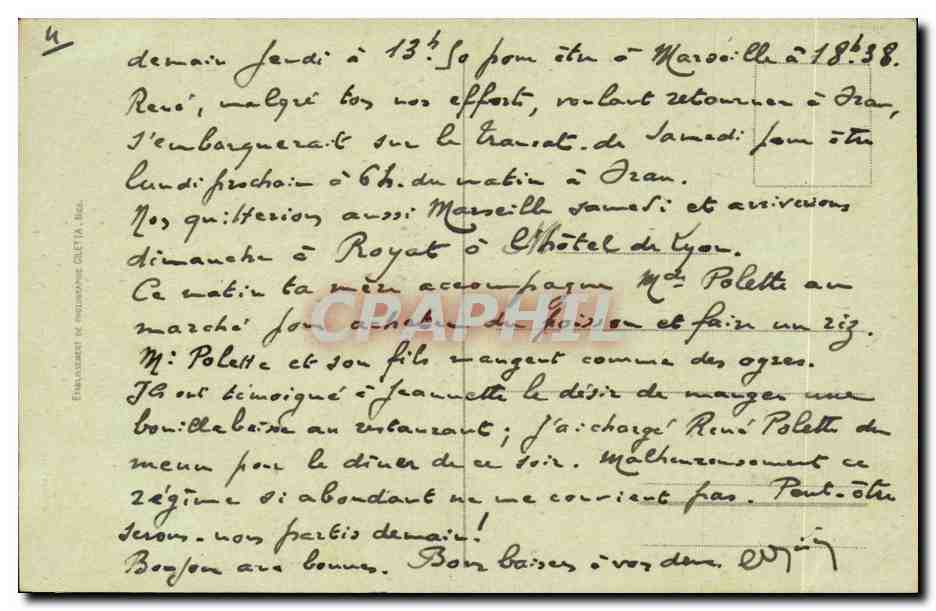 4
demain Jeudi à 13h.50 pour être à Marseille à 18h.38.
René, malgré tous nos efforts, voulant retourner à Oran,
s'embarquerait sur le transat. de Samedi pour être
lundi prochain à 6h. du matin à Oran.
Nos quitterions aussi Marseille samedi et arriverions
dimanche à Royat à l'hôtel de Lyon.
Ce matin ta mère accompagne Mde Polette au
marché pour acheter du poisson et faire un riz.
Mr Polette et son fils mangent comme des ogres.
Ils ont témoigné à Jeannette le désir de manger une
bouillabaisse au restaurant; j'ai chargé René Polette du
menu pour le dîner de ce soir. Malheureusement ce
régime si abondant ne me convient pas. Peut-être
serons-nous partis demain!
Bonjour aux bonnes. Bons baisers à vos deux.
ETABLISSEMENT DE PHOTOGRAPHIE GILETTA, Nice.
CPAPHIL.com